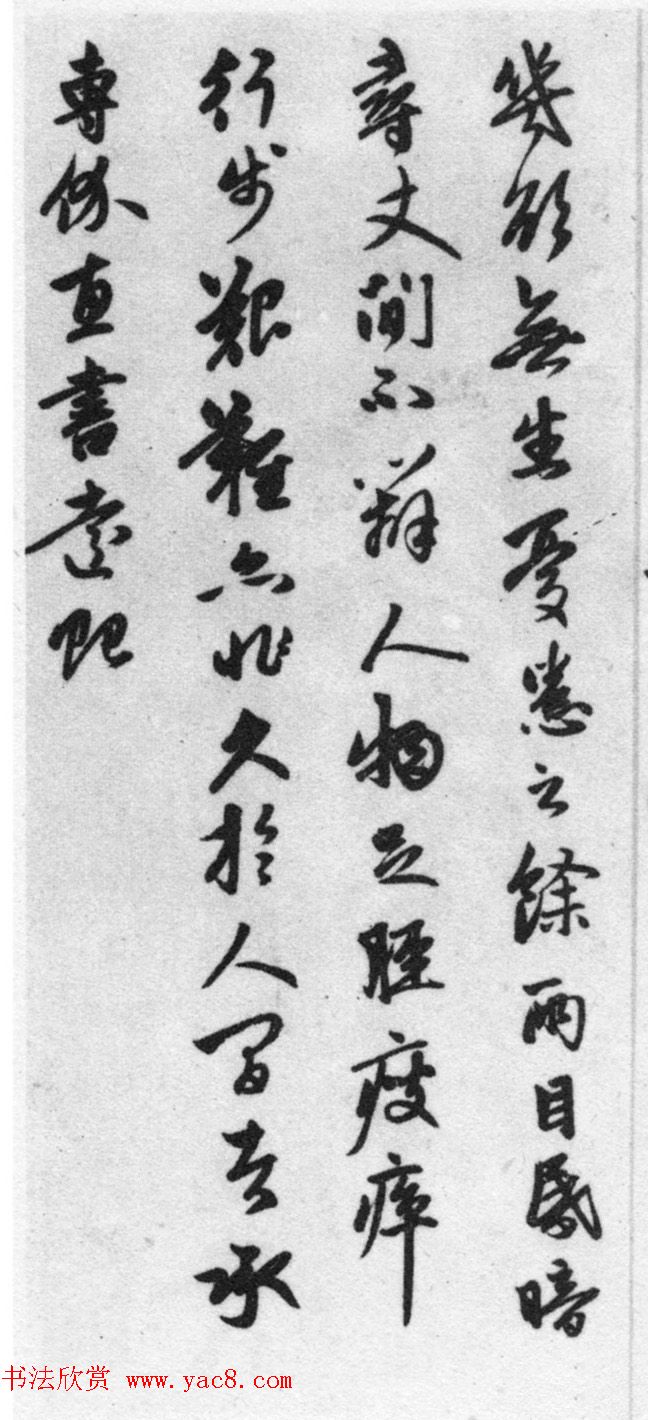 幾欲無生憂患之餘兩目昏暗
尋丈間不辨人物足脛瘦瘁
行步艱難亦非久於人間者承
專价惠書遠貺
书法欣赏 www.yac8.com